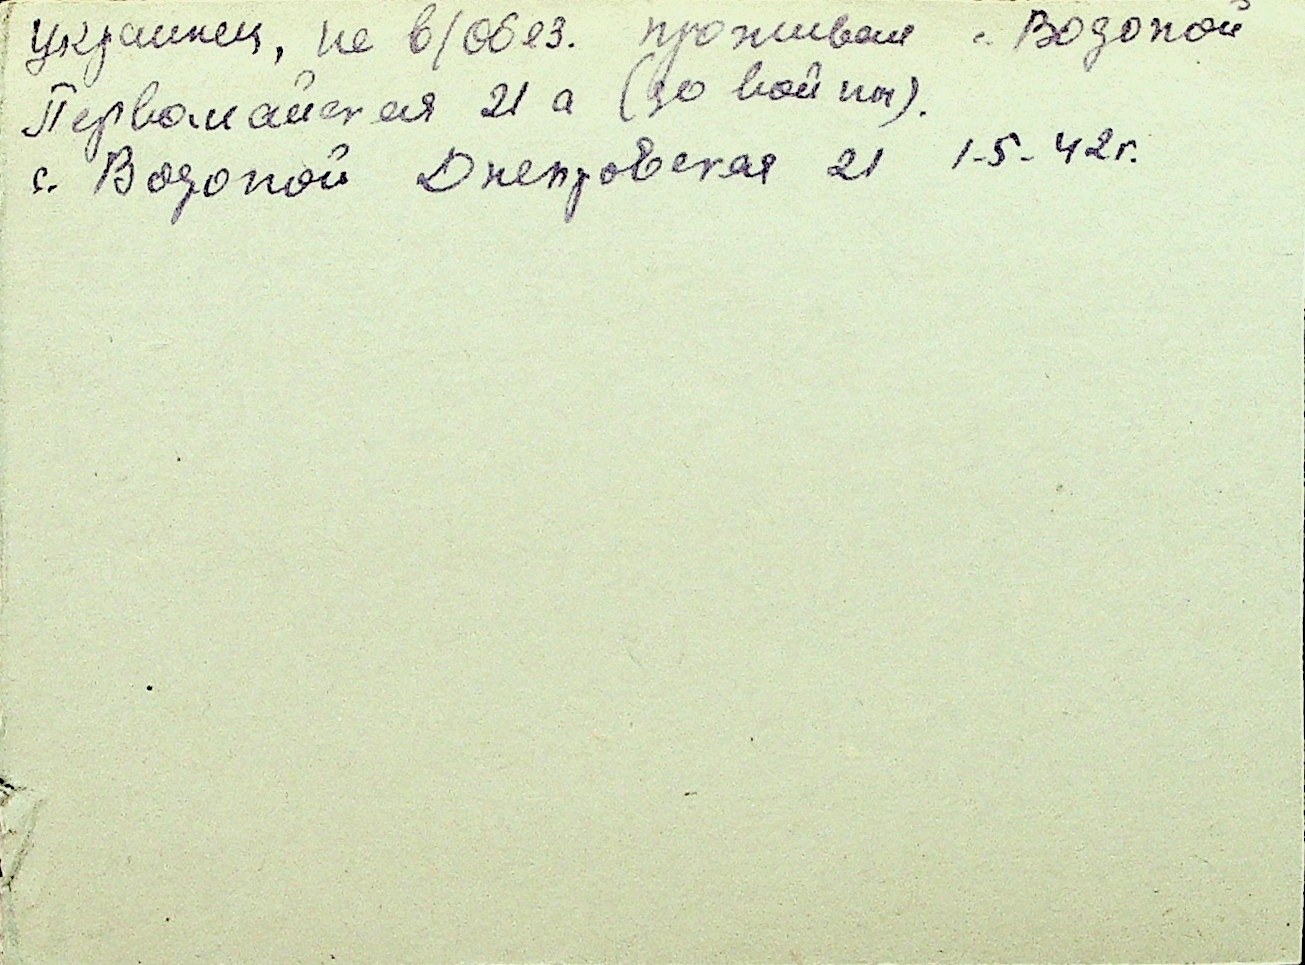 Украинец, не в/обяз. проживал с. Водопой
Первомайская 21 а (до войны).
с. Водопой Днепровская 21 1-5-42г.